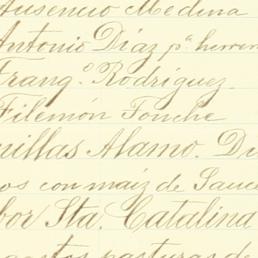 Ausencio Medina
Antonio Díaz pª herren
Frangº Rodríguez.
Filemón Fonche
uillas Alamo. Di
os con maíz de Sauce
bor Sta. Catalina
gastos pasturas de